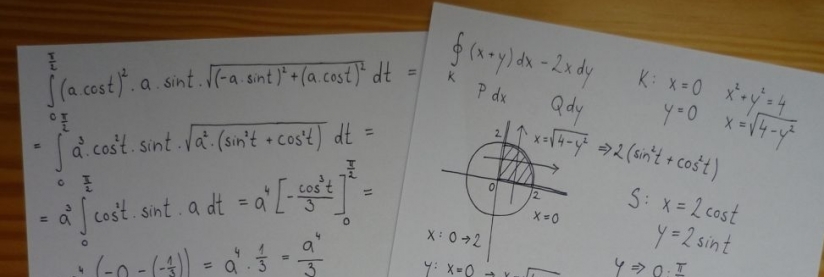 ∫₀^{π/2} (a.cost)². a. sint. √((-a.sint)² + (a.cost)²) dt =
= ∫₀^{π/2} a³. cos²t. sint. √(a².(sin²t + cos²t)) dt =
= a³ ∫₀^{π/2} cos²t. sint. a dt = a⁴ [-cos³t/3]₀^{π/2} =
(-0 - (-1/3)) = a⁴. 1/3 = a⁴/3
∮_K (x+y)dx - 2xdy
P dx Q dy
K: x=0 x²+y²=4
y=0 x=√(4-y²)
2 x=√(4-y²) ⇒ 2(sin²t + cos²t)
0 2
x=0
S: x=2cost
y=2sint
x: 0→2
y: x=0